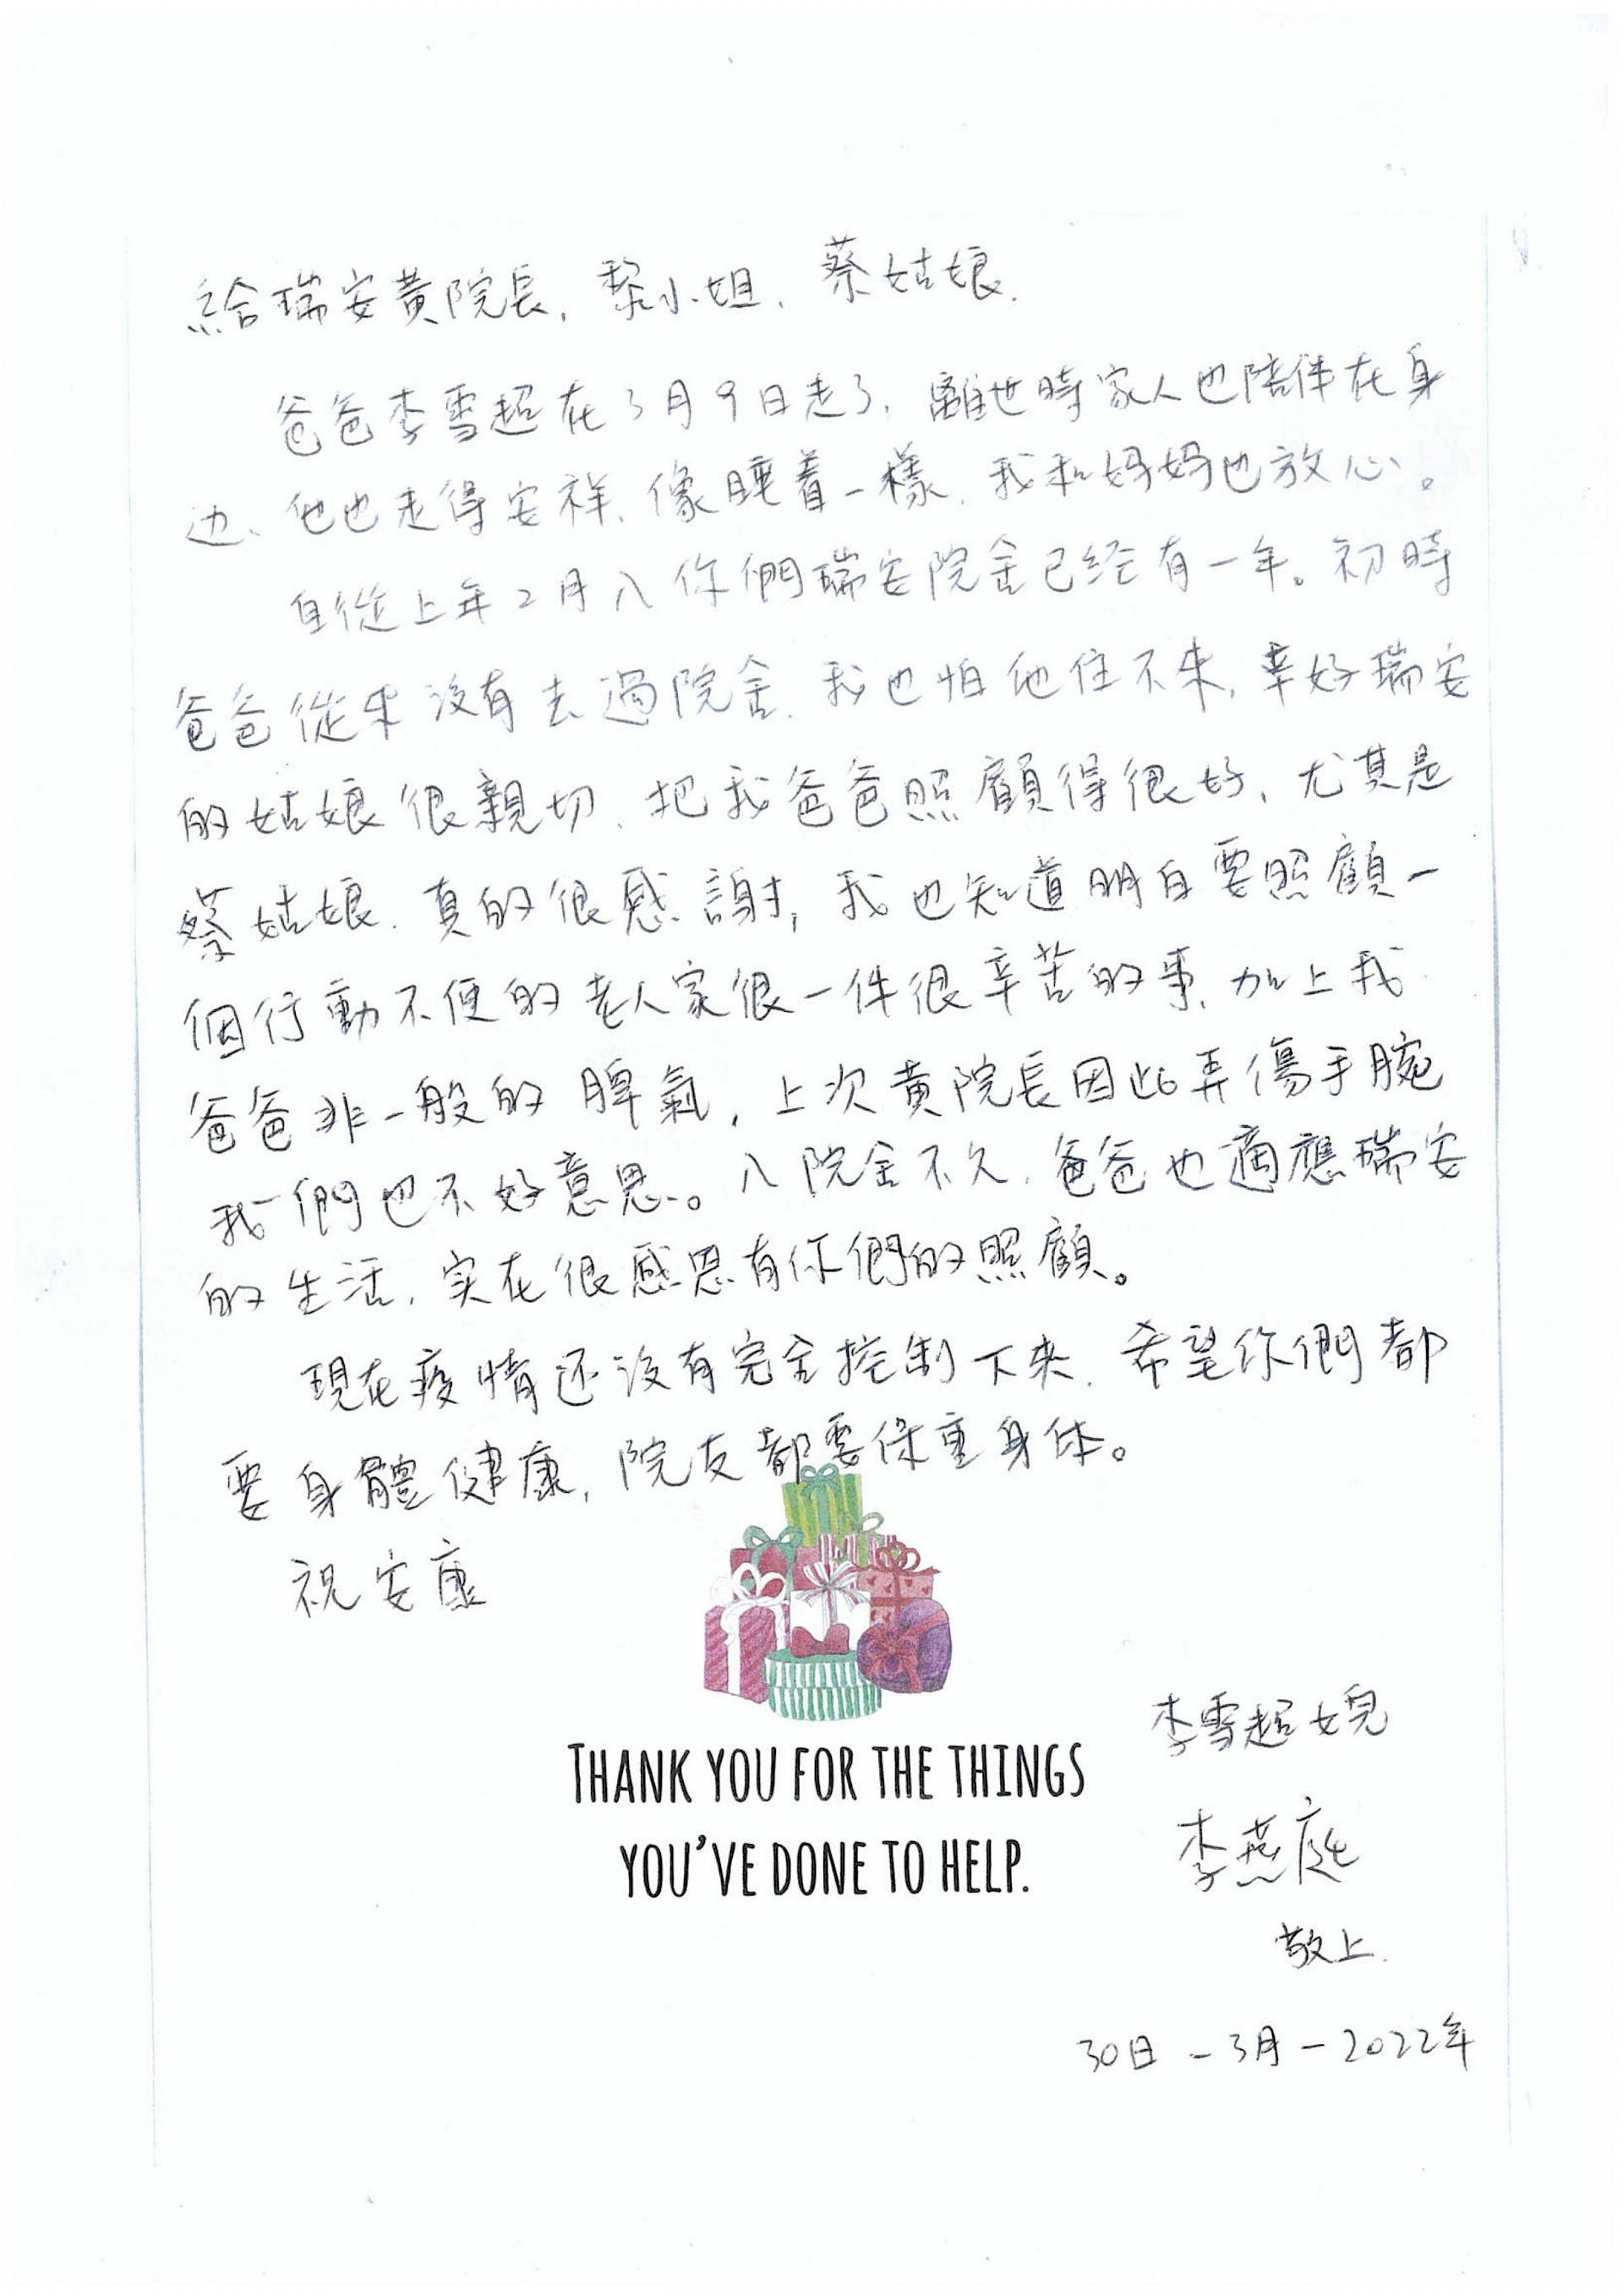 給瑞安黃院長, 黎小姐, 蔡姑娘.
爸爸李雪超在3月9日走了, 離世時家人也陪伴在身
边、他也走得安祥、像睡着一樣, 我和媽媽也放心。
自從上年2月入你們瑞安院舍已经有一年。初時
爸爸從來沒有去過院舍、我也怕他住不來, 幸好瑞安
的姑娘很親切、把我爸爸照顧得很好、尤其是
蔡姑娘. 真的很感謝, 我也知道明白要照顧一
個行動不便的老人家很一件很辛苦的事, 加上我
爸爸非一般的脾氣, 上次黃院長因此弄傷手腕
我們也不好意思。入院舍不久, 爸爸也適應瑞安
的生活, 实在很感恩有你們的照顧。
現在疫情还沒有完全控制下來, 希望你們都
要身體健康, 院友都要保重身体。
祝安康
THANK YOU FOR THE THINGS
YOU'VE DONE TO HELP.
李雪超女兒
李燕庭
敬上.
30日-3月-2022年